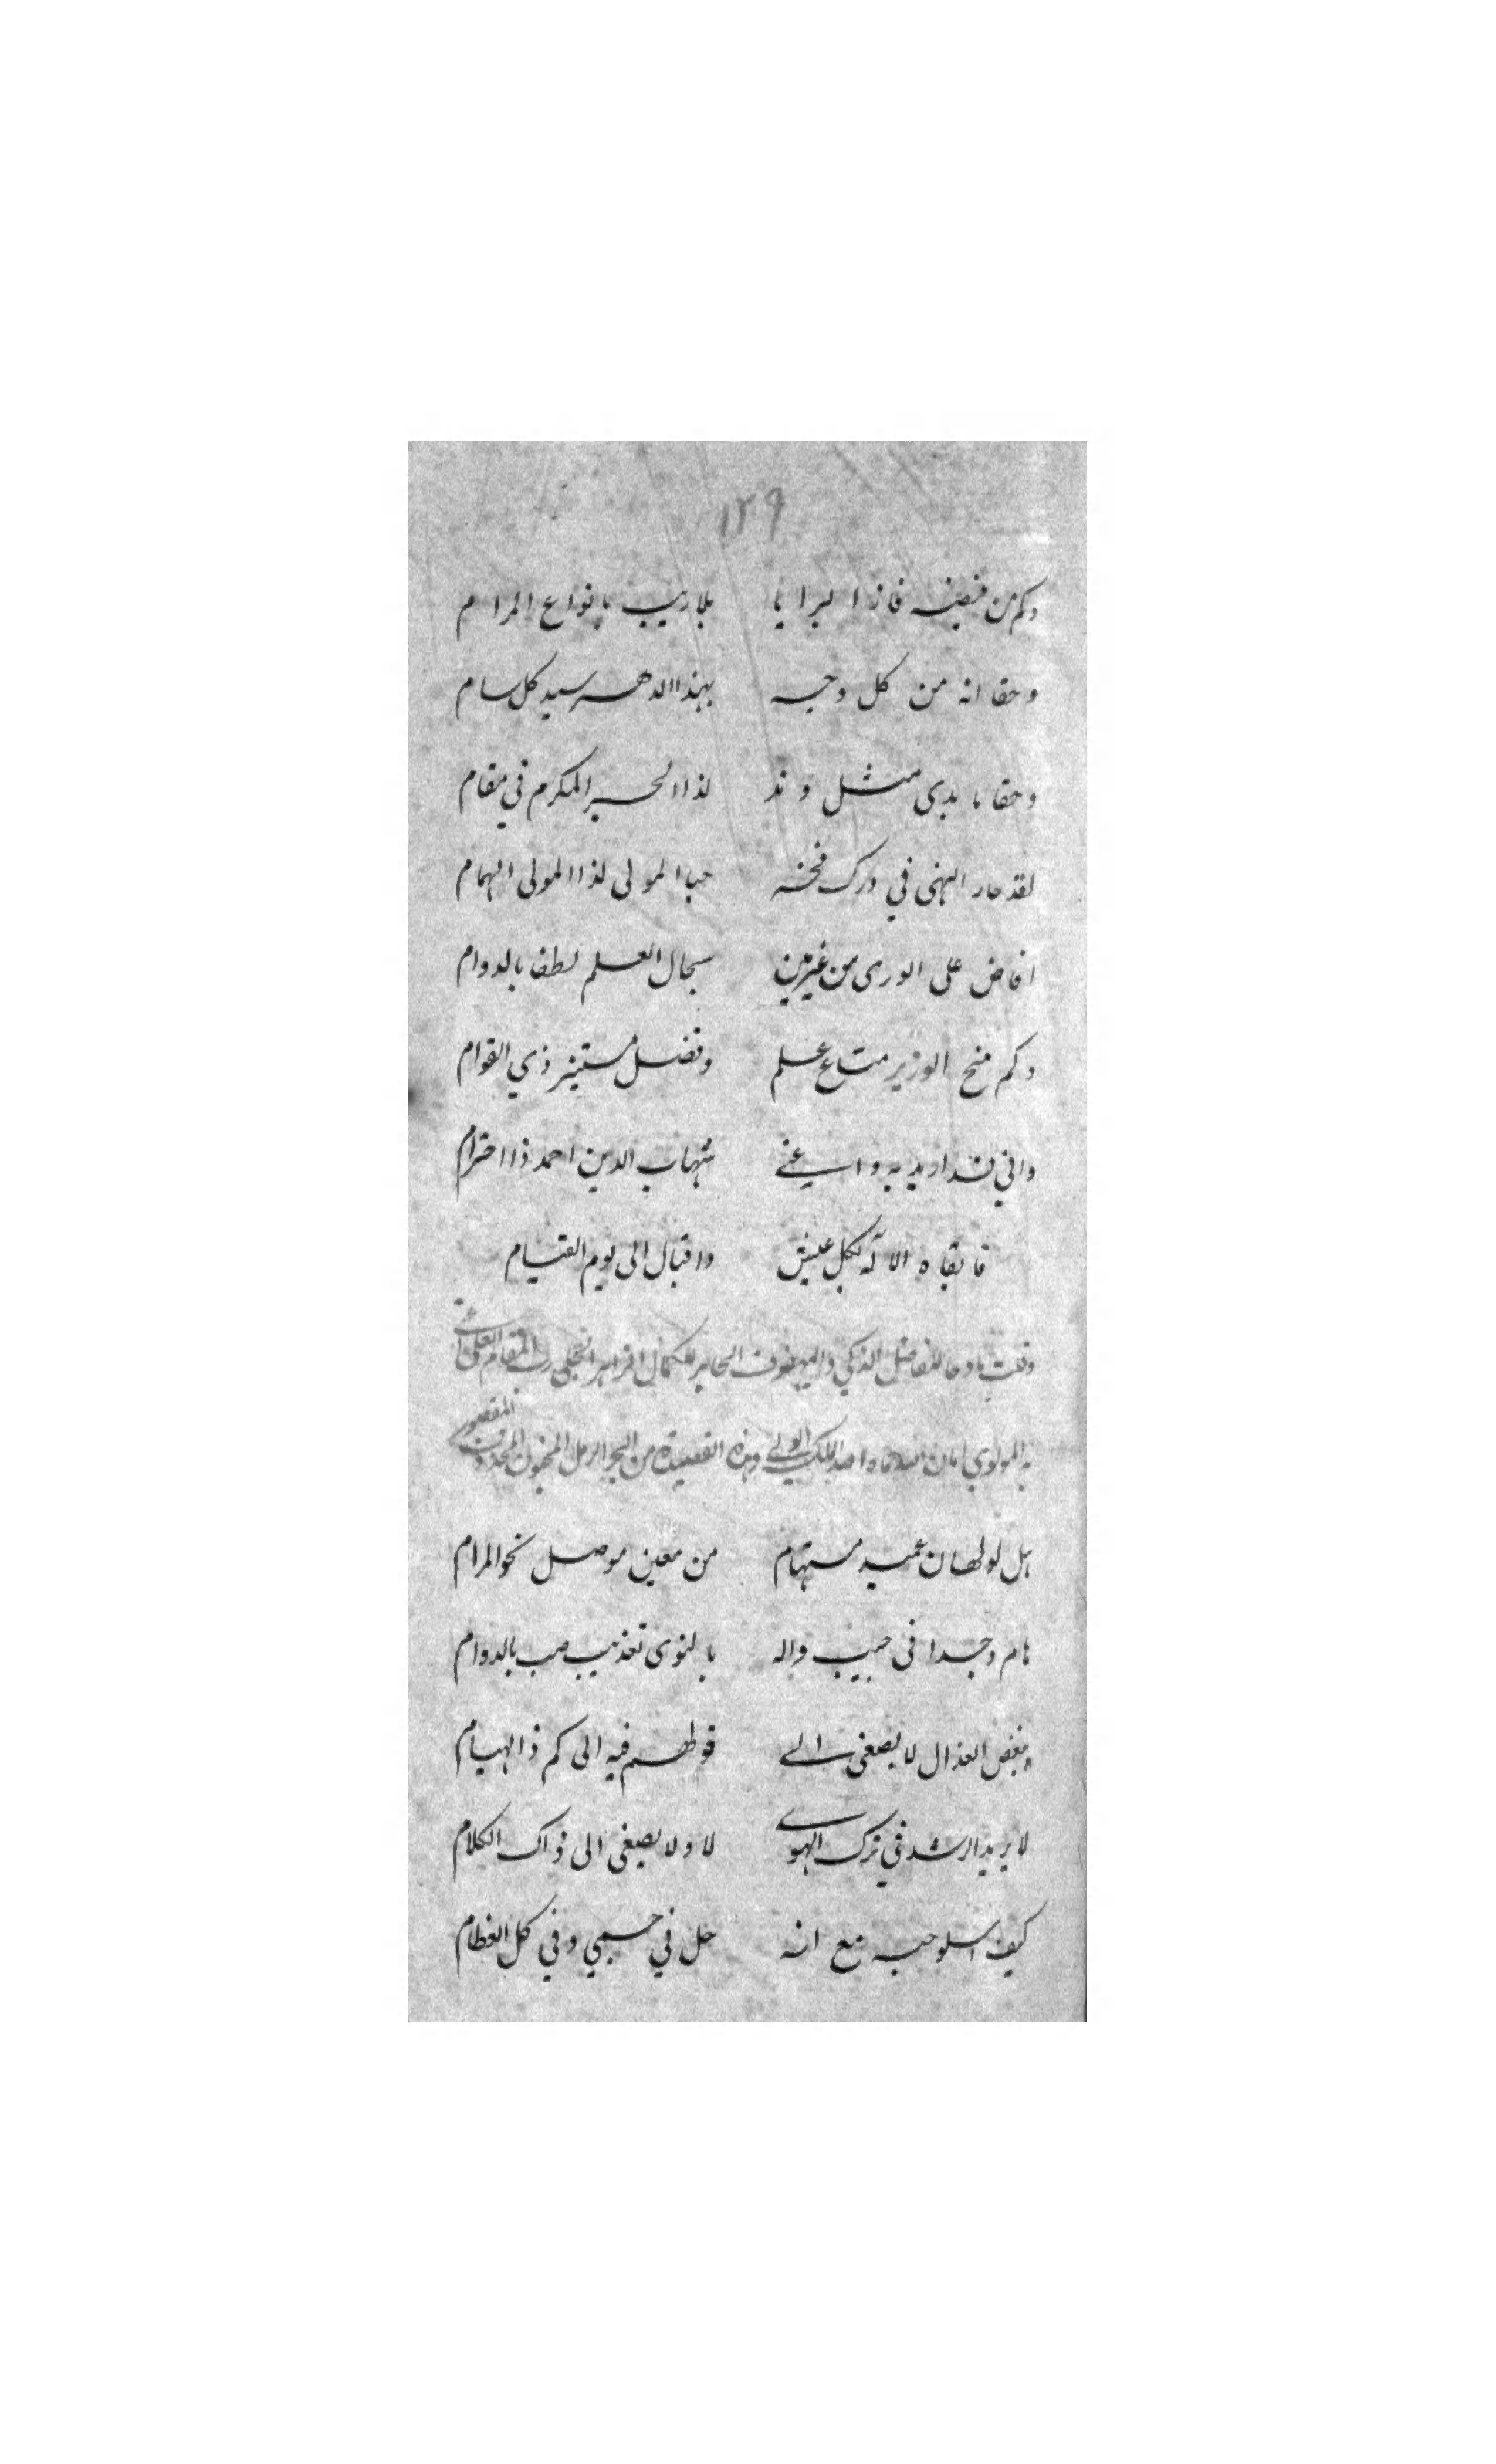 ١٢٩
وكم من فيضه فاز البرايا بلا ريب بانواع المرام
وحقا انه من كل وجه بهذا الدهر سيد كل سام
وحقا ما بدى مثل وند لذا الحبر المكرم في مقام
لقد حار النهى في درك فخنه حبا المولى لذا المولى الهمام
افاض على الورى من غير مين سجال العلم لطفا بالدوام
وكم منح الوزير متاع علم وفضل مستنير ذي القوام
واني شهاب الدين احمد ذا احترام
فابقاه الاله لكل عيش واقبال الى يوم القيام
وقلت مادحا للفاضل الذكي الحابر للكمال رب المقام العلى
به المولوي امان الله وهذه القصيدة من البحر الرمل المخبون المحذوف المقصور
هل لولهان عميد مستهام من معين موصل نحو المرام
هام وجدا في حبيب واله بالنوى تعذيب صب بالدوام
يبغض العذال لا يصغى الى قولهم فيه الى كم ذا الهيام
لا يريد الرشد في ترك الهوى لا ولا يصغى الى ذاك الكلام
كيف اسلو حبه مع انه حل في جسمي وفي كل العظام